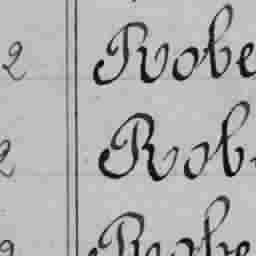 2 Robe
2 Rob
2 Robe